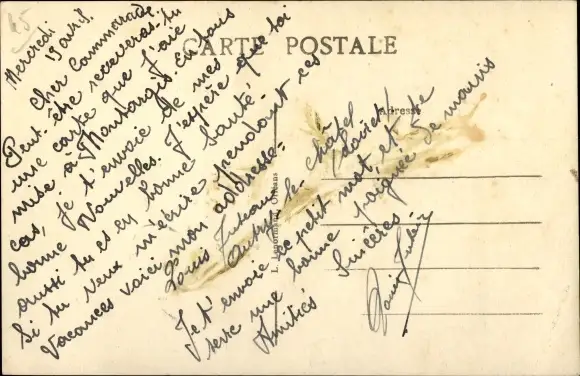 65
Mercredi
19 avril.
Cher Cammarade
Peut-être receveras-tu
une carte que j'aie
mise à Montargis. En tous
cas, je t'envoie de mes
bonne Nouvelles. J'espère que toi
aussi tu es en bonne santé.
Si tu veux m'écrire pendant ces
Vacances voici mon addresse:
Louis
Autry le châtel
(Loiret)
Je t'envoie ce petit mot, et te
serre une bonne poignée de mains
Amitiés Sincères
CARTE POSTALE
Adresse
L. Lenormand, Orléans